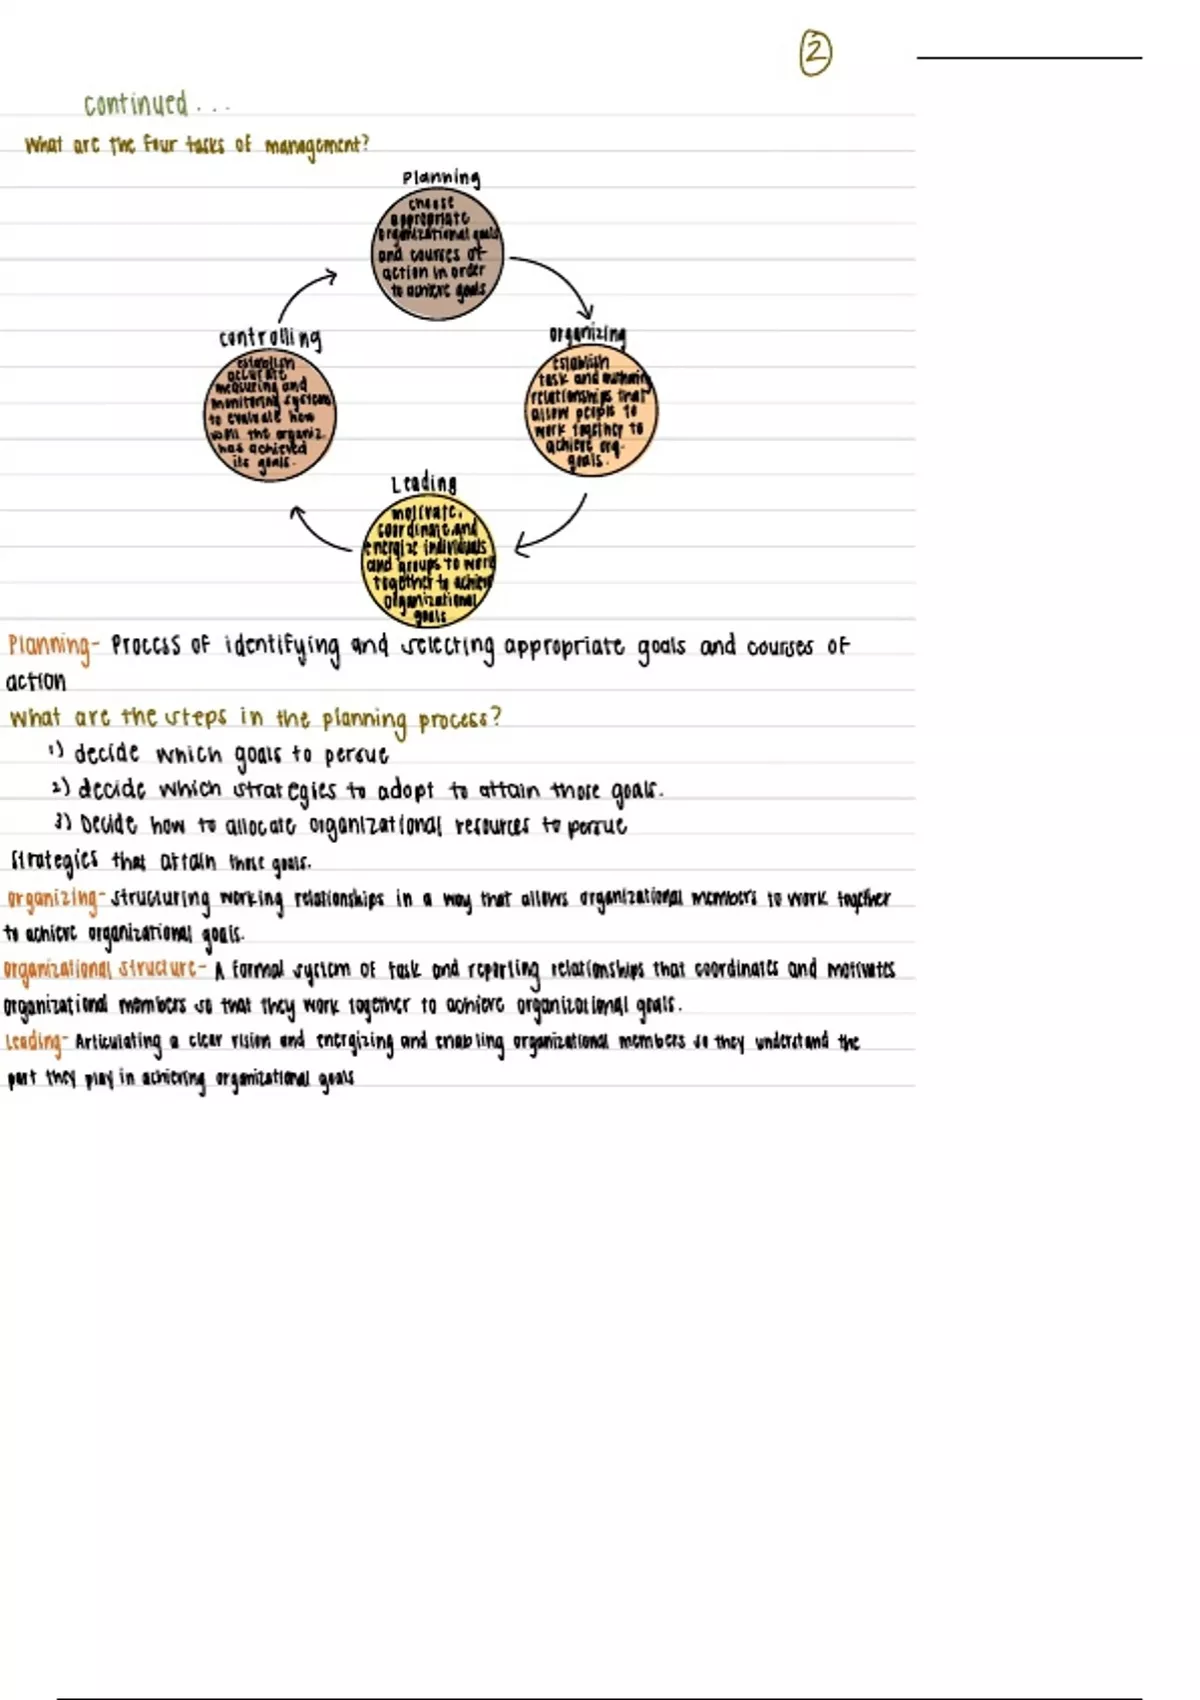 2
continued...
What are the four tasks of management?
Planning
choose
appropriate
organizational goals
and courses of
action in order
to achieve goals
controlling
establish
accurate
measuring and
monitoring systems
to evaluate how
well the organiz.
has achieved
its goals.
organizing
establish
task and authority
relationships that
allow people to
work together to
achieve org-
goals.
Leading
motivate,
coordinate, and
energize individuals
and groups to work
together to achieve
organizational
goals
Planning- Process of identifying and selecting appropriate goals and courses of
action
What are the steps in the planning process?
1) decide which goals to persue
2) decide which strategies to adopt to attain those goals.
3) Decide how to allocate organizational resources to persue
strategies that attain those goals.
organizing- structuring working relationships in a way that allows organizational members to work together
to achieve organizational goals.
organizational structure- A formal system of task and reporting relationships that coordinates and motivates
organizational members so that they work together to achieve organizational goals.
Leading- Articulating a clear vision and energizing and enabling organizational members so they understand the
part they play in achieving organizational goals